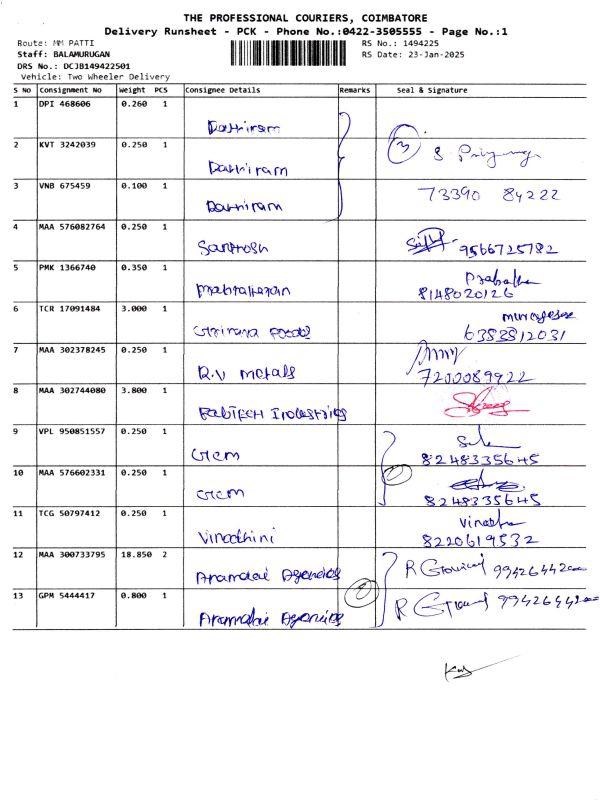 THE PROFESSIONAL COURIERS, COIMBATORE
Delivery Runsheet - PCK - Phone No.:0422-3505555 - Page No.:1
Route: MM PATTI
RS No.: 1494225
Staff: BALAMURUGAN
RS Date: 23-Jan-2025
DRS No.: DCJB149422501
Vehicle: Two Wheeler Delivery
S No Consignment No Weight PCS Consignee Details Remarks Seal & Signature
1 DPI 468606 0.260 1
2 KVT 3242039 0.250 1
3
3 VNB 675459 0.100 1
73390 84222
4 MAA 576082764 0.250 1
Santhosh 9566725782
5 PMK 1366740 0.350 1
8148020126
6 TCR 17091484 3.000 1
Foods 6383512031
7 MAA 302378245 0.250 1
R.V Metals 7200089922
8 MAA 302744080 3.800 1
9 VPL 950851557 0.250 1
Gem 8248335645
10 MAA 576602331 0.250 1
Gem 8248335645
11 TCG 50797412 0.250 1
Vinodhini 8220619532
12 MAA 300733795 18.850 2
Agencies
13 GPM 5444417 0.800 1
Agencies